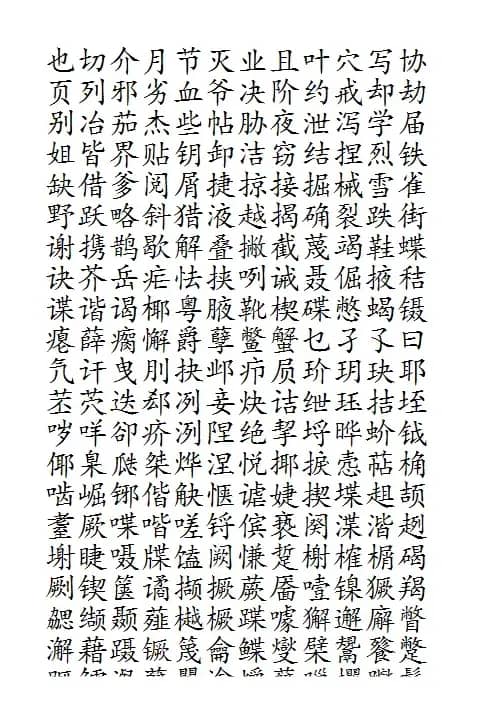 也切介月节灭业且叶穴写协
页列邪劣血爷决阶约戒却劫
别冶茄杰些帖胁夜泄泻学届
姐皆界贴钥卸洁窃结捏烈铁
缺借爹阅屑捷掠接掘械雪雀
野跃略斜猎液越揭确裂跌街
谢携鹊歇解叠撇截蔑竭鞋蝶
诀芥岳疟怯挟咧诫聂倔掖秸
谍谐谒椰粤腋靴楔碟憋蝎镊
瘪薛瘸懈爵孽鳖蟹乜孑孓曰
氕讦曳刖抉邺疖屃玠玥玦耶
苤茓迭郄冽妾炔诘绁珏拮垤
哕咩卻疥洌陧绝挈埒晔蚧钺
倻臬瓞桀烨涅悦揶捩悫萜桷
啮崛铘偕觖惬谑婕揳堞趄颉
耋厥喋喈嗟锊傧亵阕渫湝趔
榭睫嗫牒馌阙慊踅榭榷楣碣
劂锲箧谲撷撅蕨靥噎镍獗羯
勰缬颞薤樾橛蹀噱獬邂廨瞥
澥藉蹑镢篾龠鲽燮檗鬶餮蹩